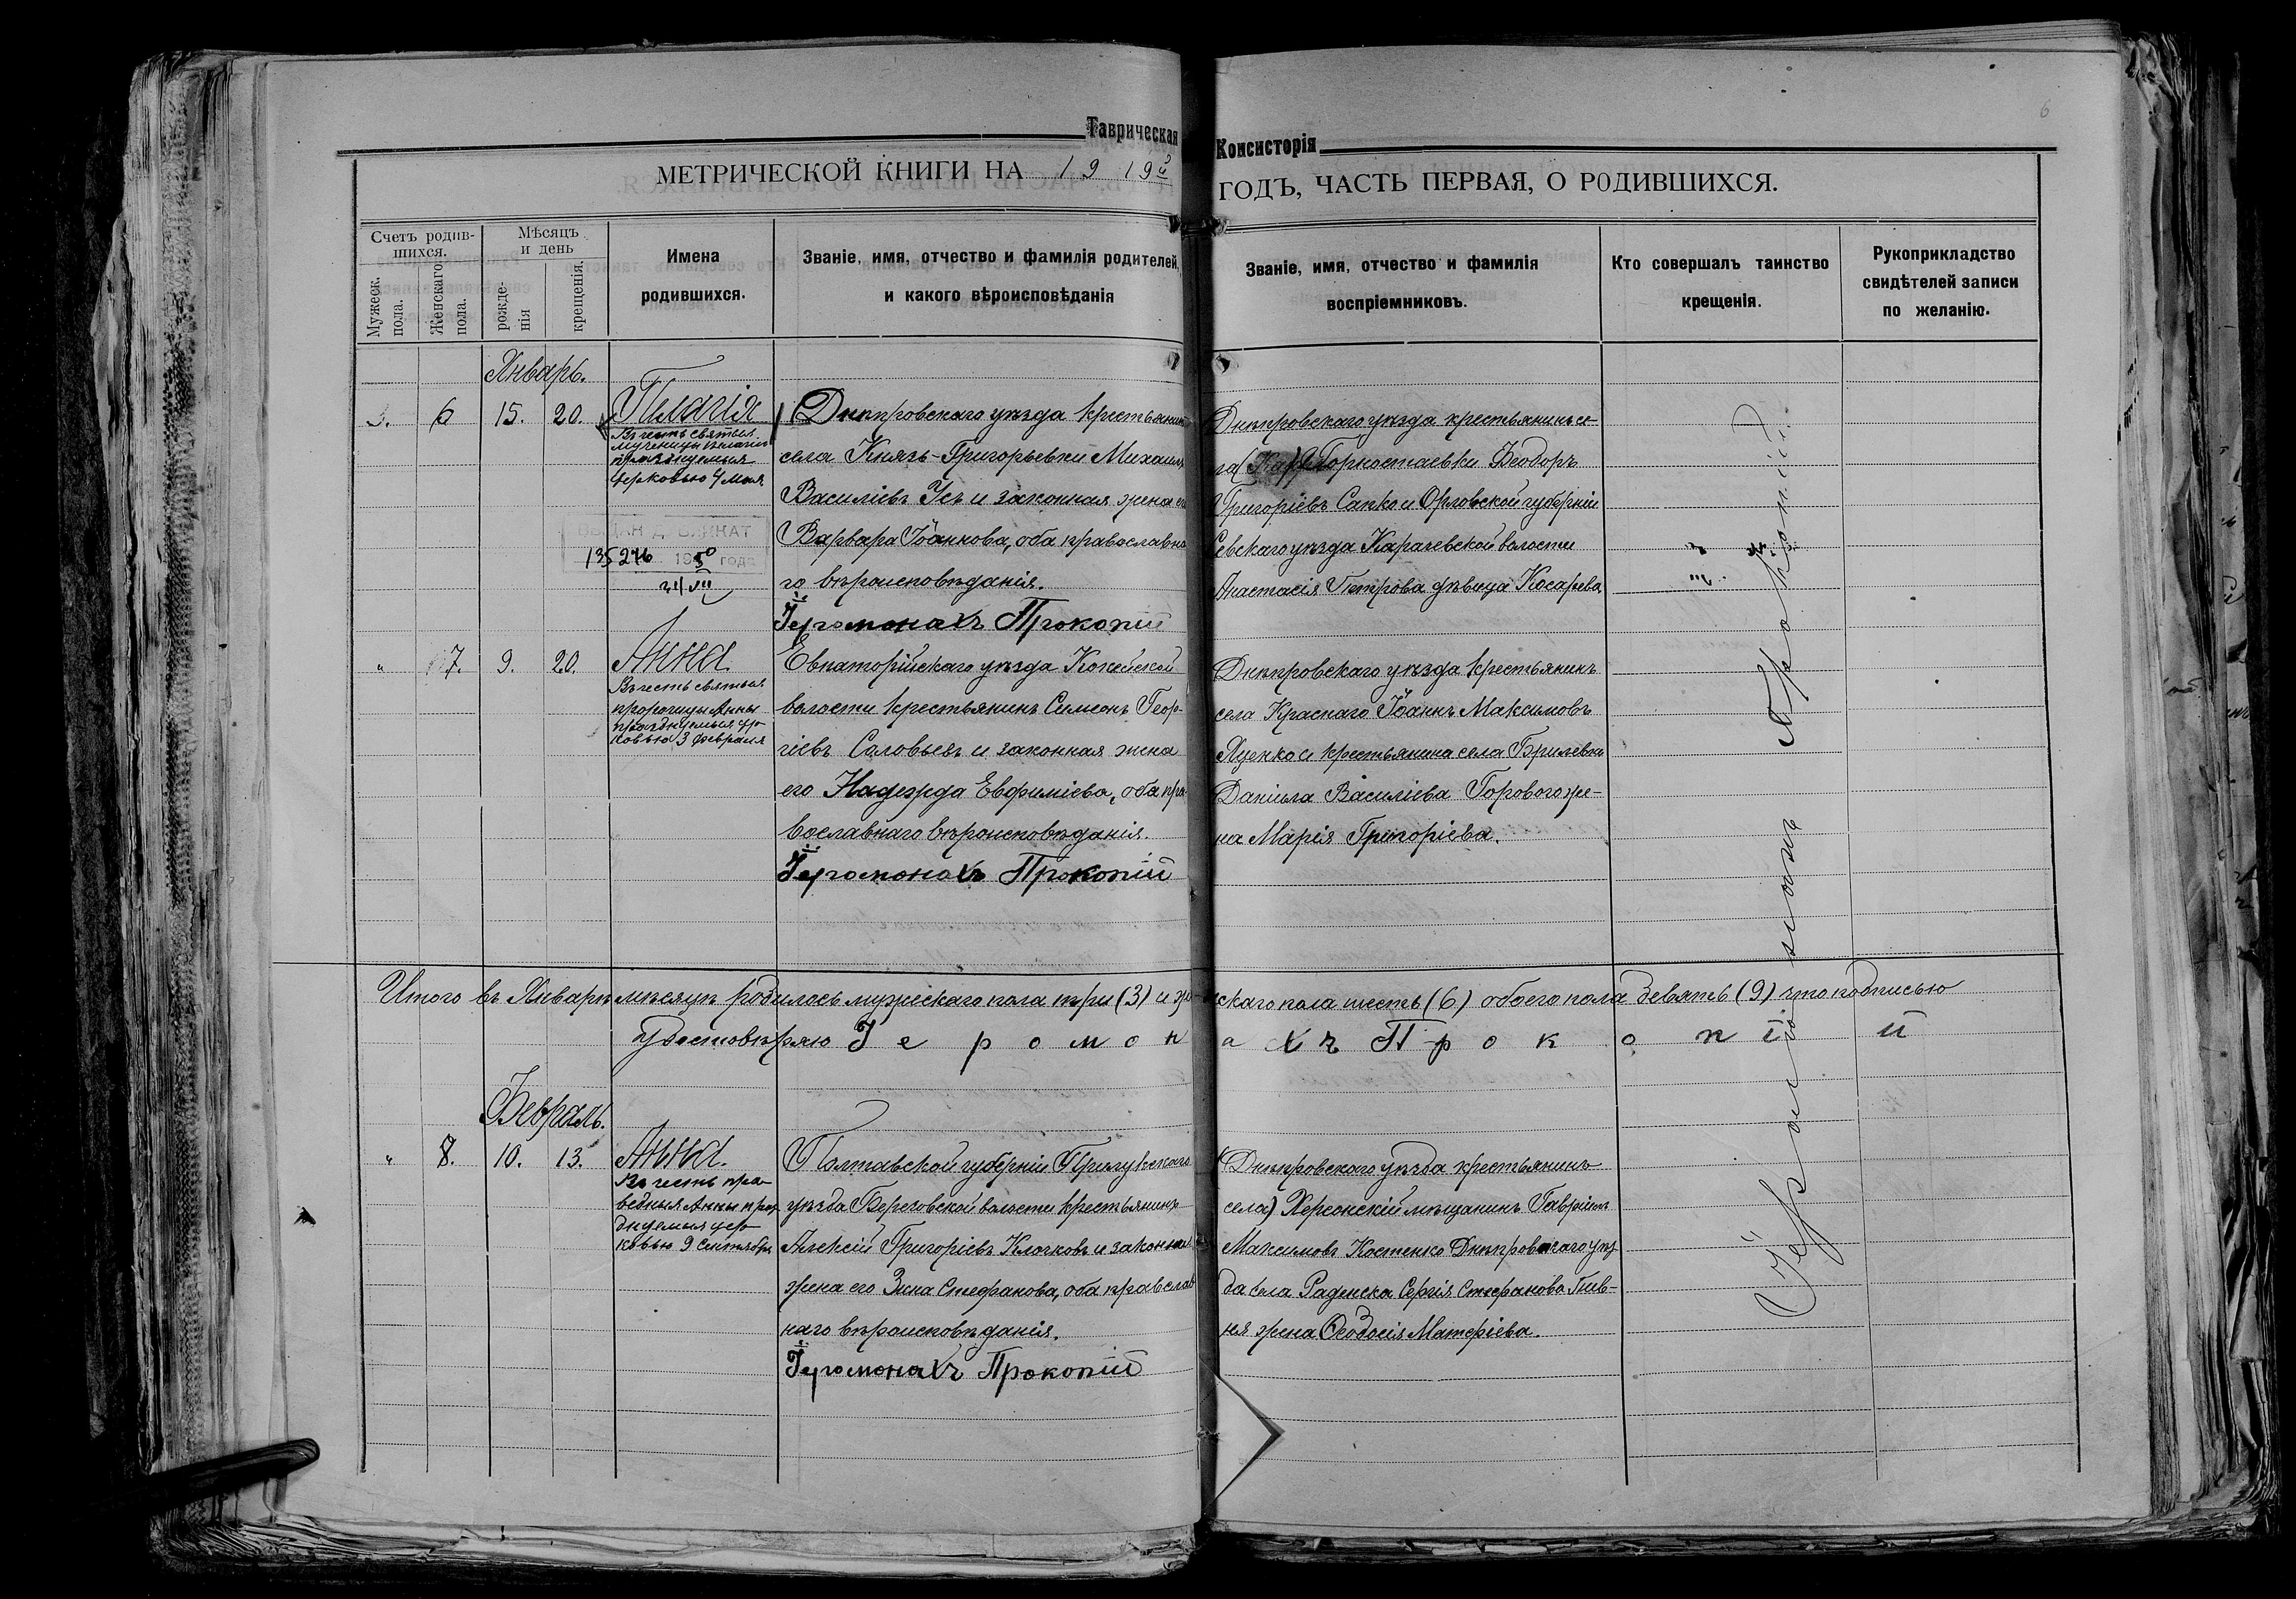 Таврическая Консисторія
МЕТРИЧЕСКОЙ КНИГИ НА 1919й ГОДЪ, ЧАСТЬ ПЕРВАЯ, О РОДИВШИХСЯ.
6
Счетъ родив-
шихся.
Мужеск.
пола.
Женскаго
пола.
Мѣсяцъ
и день
рожде-
нія
крещенія.
Имена
родившихся.
Званіе, имя, отчество и фамилія родителей,
и какого вѣроисповѣданія
Званіе, имя, отчество и фамилія
воспріемниковъ.
Кто совершалъ таинство
крещенія.
Рукоприкладство
свидѣтелей записи
по желанію.
Январь.
3. 6 15. 20.
Пелагія
Въ честь святыя
мученицы Пелагіи
празднуемыя
Церковью 4 мая
135276 1950 года
24/VII
Днѣпровскаго уѣзда крестьянинъ
села Князь-Григорьевки Михаилъ
Василіевъ Усъ и законная жена его
Варвара Іоаннова, оба православна-
го вѣроисповѣданія.
Іеромонахъ Прокопій
Днѣпровскаго уѣзда крестьянинъ се-
ла Горностаевки Ѳеодоръ
Григоріевъ Сапко и Орловской губерніи
Севскаго уѣзда Карачевской волости
Анастасія Петрова дѣвица Косарева
" 7. 9. 20.
Анна
Въ честь святыя
пророчицы Анны
празднуемыя цер-
ковью 3 февраля
Евпаторійскаго уѣзда Кокейской
волости крестьянинъ Симеонъ Геор-
гіевъ Соловьевъ и законная жена
его Надежда Евфиміева, оба пра-
вославнаго вѣроисповѣданія.
Іеромонахъ Прокопій
Днѣпровскаго уѣзда крестьянинъ
села Краснаго Іоаннъ Максимовъ
Яценко и крестьянина села Брилевки
Даніила Василіева Горового же-
на Марія Григоріева.
Итого въ Январѣ мѣсяцѣ родилось мужескаго пола три (3) и женскаго пола шесть (6) обоего пола девять (9) что подписью
удостовѣряю Іеромонахъ Прокопій
Февраль.
" 8. 10. 13.
Анна.
Въ честь пра-
ведныя Анны праз-
днуемыя цер-
ковью 9 Сентября
Полтавской губерніи Прилукскаго
уѣзда Березовской волости крестьянинъ
Алексій Григоріевъ Клочковъ и законная
жена его Зина Стефанова, оба православ-
наго вѣроисповѣданія.
Іеромонахъ Прокопій
(Днѣпровскаго уѣзда крестьянинъ
села) Херсонскій мѣщанинъ Гавріилъ
Максимовъ Костенко Днѣпровскаго уѣз-
да села Раденска Сергія Стефанова Пив-
ня жена Ѳеодосія Матѳіева.
Іеромонахъ Прокопій